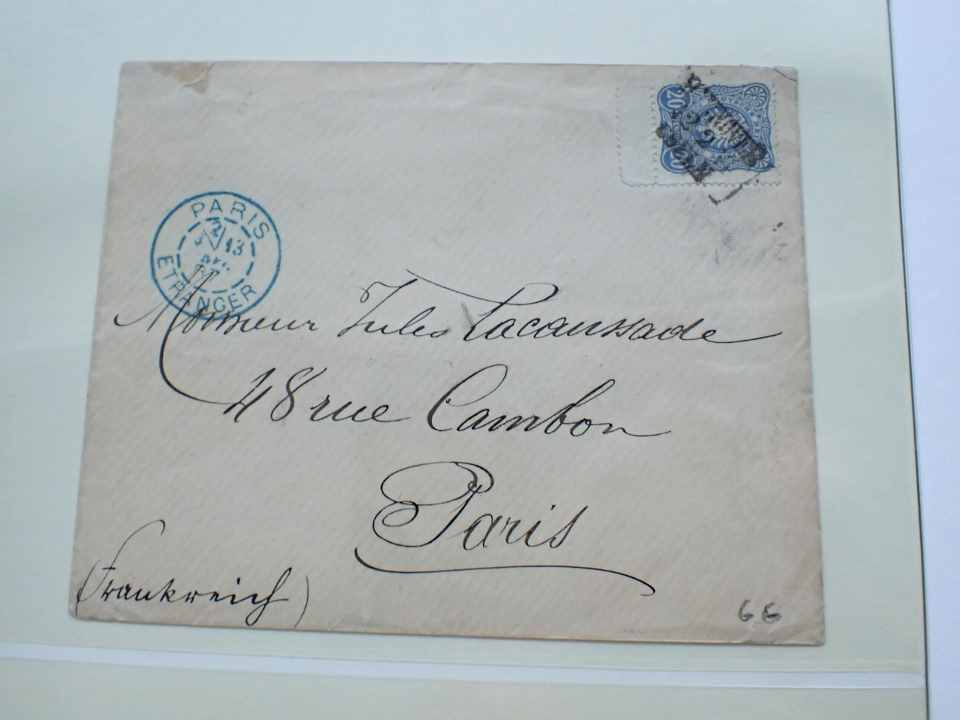 20
20
PARIS
13
ETRANGER
Monsieur Jules Lacaussade
48 rue Cambon
Paris
(Frankreich)